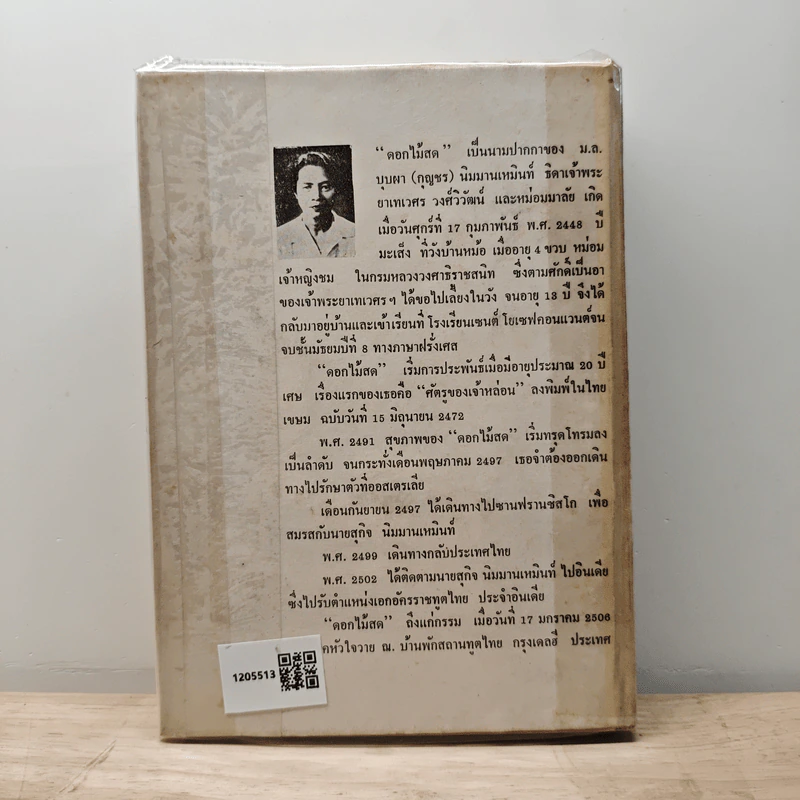 “ดอกไม้สด” เป็นนามปากกาของ ม.ล.
บุบผา (กุญชร) นิมมานเหมินท์ ธิดาเจ้าพระ
ยาเทเวศร วงศ์วิวัฒน์ และหม่อมมาลัย เกิด
เมื่อวันศุกร์ที่ 17 กุมภาพันธ์ พ.ศ. 2448 ปี
มะเส็ง ที่วังบ้านหม้อ เมื่ออายุ 4 ขวบ หม่อม
เจ้าหญิงชม ในกรมหลวงวงศาธิราชสนิท ซึ่งตามศักดิ์เป็นอา
ของเจ้าพระยาเทเวศร ฯ ได้ขอไปเลี้ยงในวัง จนอายุ 13 ปี จึงได้
กลับมาอยู่บ้านและเข้าเรียนที่ โรงเรียนเซนต์ โยเซฟคอนแวนต์จน
จบชั้นมัธยมปีที่ 8 ทางภาษาฝรั่งเศส
“ดอกไม้สด” เริ่มการประพันธ์เมื่อมีอายุประมาณ 20 ปี
เศษ เรื่องแรกของเธอคือ “ศัตรูของเจ้าหล่อน” ลงพิมพ์ในไทย
เขษม ฉบับวันที่ 15 มิถุนายน 2472
พ.ศ. 2491 สุขภาพของ “ดอกไม้สด” เริ่มทรุดโทรมลง
เป็นลำดับ จนกระทั่งเดือนพฤษภาคม 2497 เธอจำต้องออกเดิน
ทางไปรักษาตัวที่ออสเตรเลีย
เดือนกันยายน 2497 ได้เดินทางไปซานฟรานซิสโก เพื่อ
สมรสกับนายสุกิจ นิมมานเหมินท์
พ.ศ. 2499 เดินทางกลับประเทศไทย
พ.ศ. 2502 ได้ติดตามนายสุกิจ นิมมานเหมินท์ ไปอินเดีย
ซึ่งไปรับตำแหน่งเอกอัครราชทูตไทย ประจำอินเดีย
“ดอกไม้สด” ถึงแก่กรรม เมื่อวันที่ 17 มกราคม 2506
คหัวใจวาย ณ. บ้านพักสถานทูตไทย กรุงเดลฮี ประเทศ
1205513